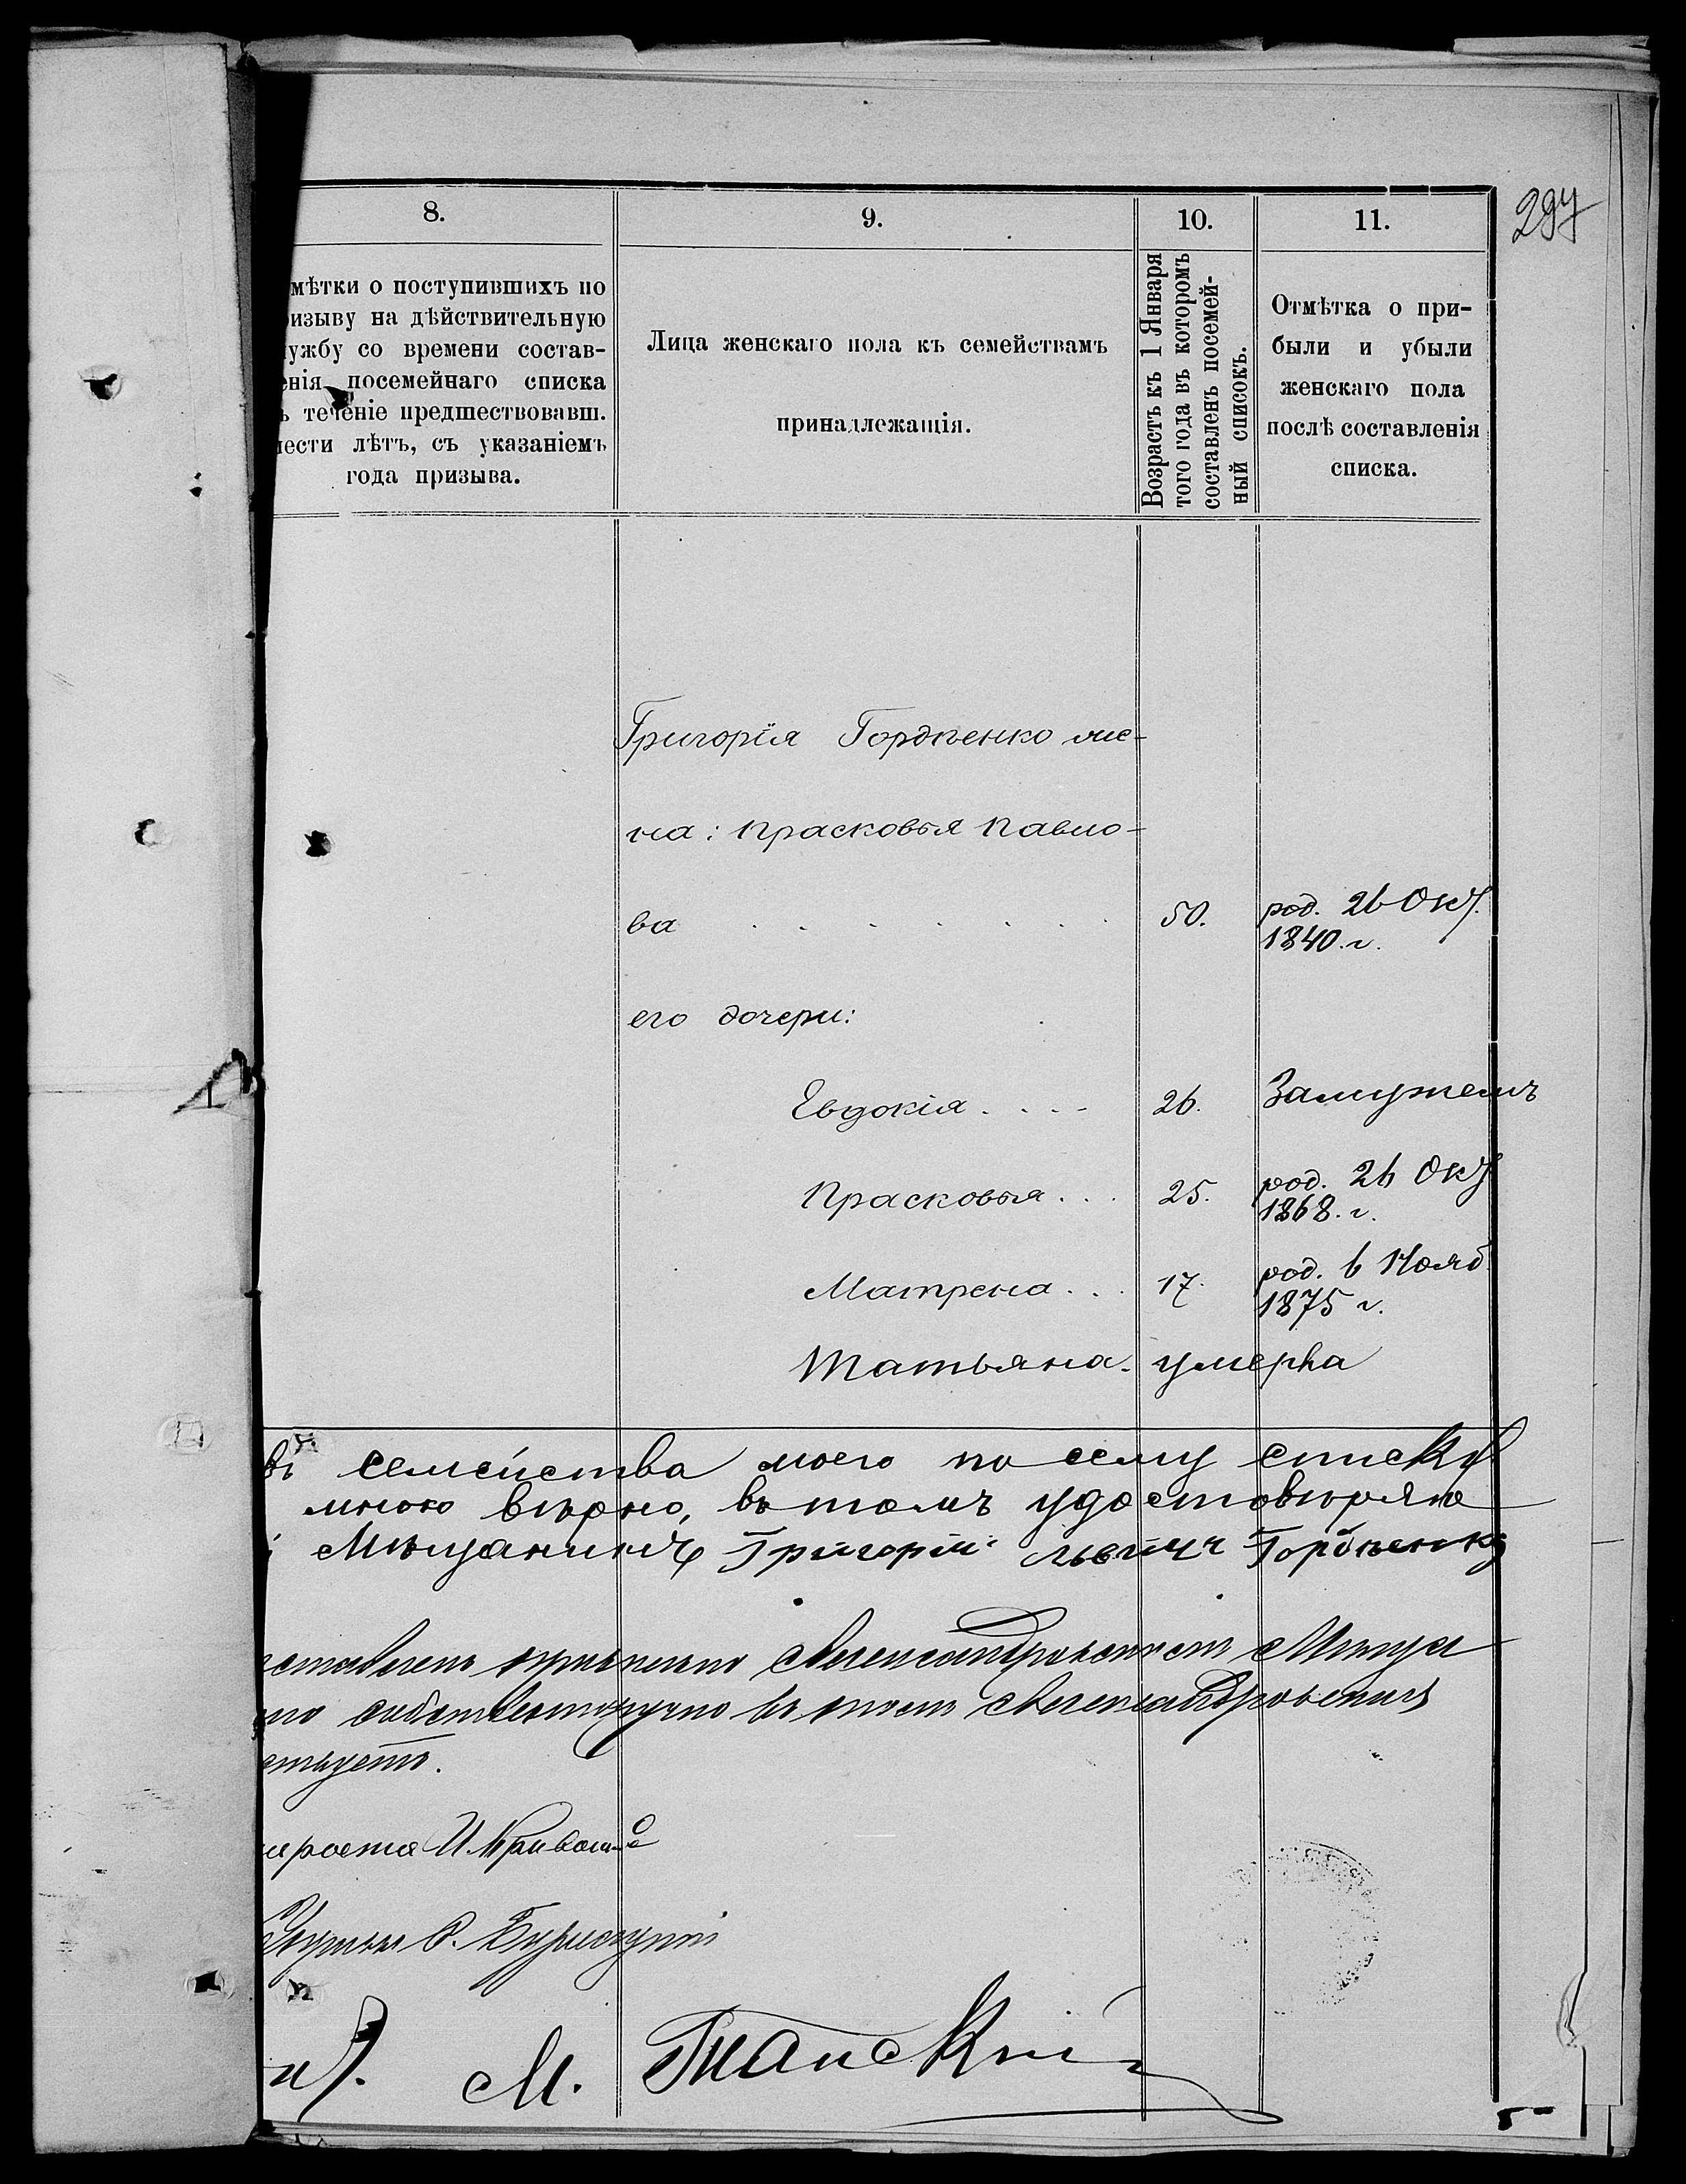 297
8.
9.
10.
11.
мѣтки о поступившихъ по
ризыву на дѣйствительную
ужбу со времени состав-
енія посемейнаго списка
ъ теченіе предшествовавш.
ести лѣтъ, съ указаніемъ
года призыва.
Лица женскаго пола къ семействамъ
принадлежащія.
Возрастъ къ 1 Января
того года въ которомъ
составленъ посемей-
ный списокъ.
Отмѣтка о при-
были и убыли
женскаго пола
послѣ составленія
списка.
Григорія Гордѣенко же-
на: Прасковья Павло-
ва . . . . . . 50. род. 26 Окт.
1840. г.
его дочери:
Евдокія . . . . 26. Замужемъ
Прасковья . . . 25. род. 26 Окт.
1868. г.
Матрена . . . 17. род. 6 Нояб.
1875 г.
Татьяна. умерла
въ семейства моего по сему списку
мною вѣрно, въ томъ удостовѣряю
Мѣщанинъ Григорій Гордѣенко
Александровскимъ Мѣща
но собственноручно въ томъ Александровская
ствуетъ.
ароста И.
М.